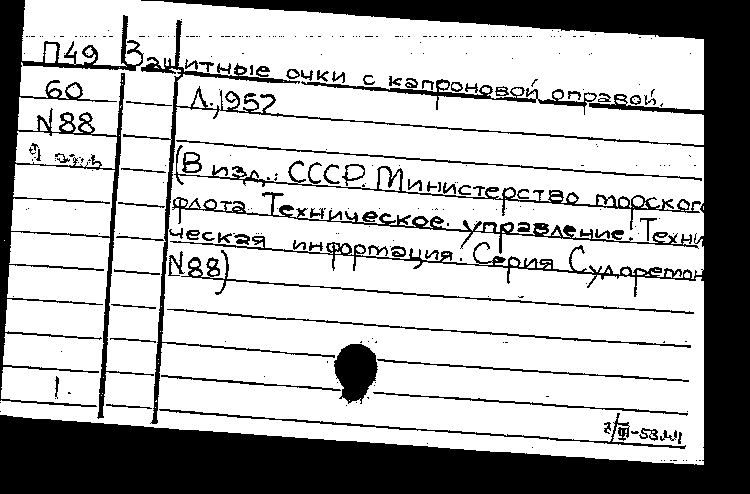 П49 Защитные очки с капроновой оправой.
60 Л., 1952
N88
(В изд.: СССР. Министерство морског
флота. Техническое управление. Техни
ческая информация. Серия Судоремон
N88)
1.